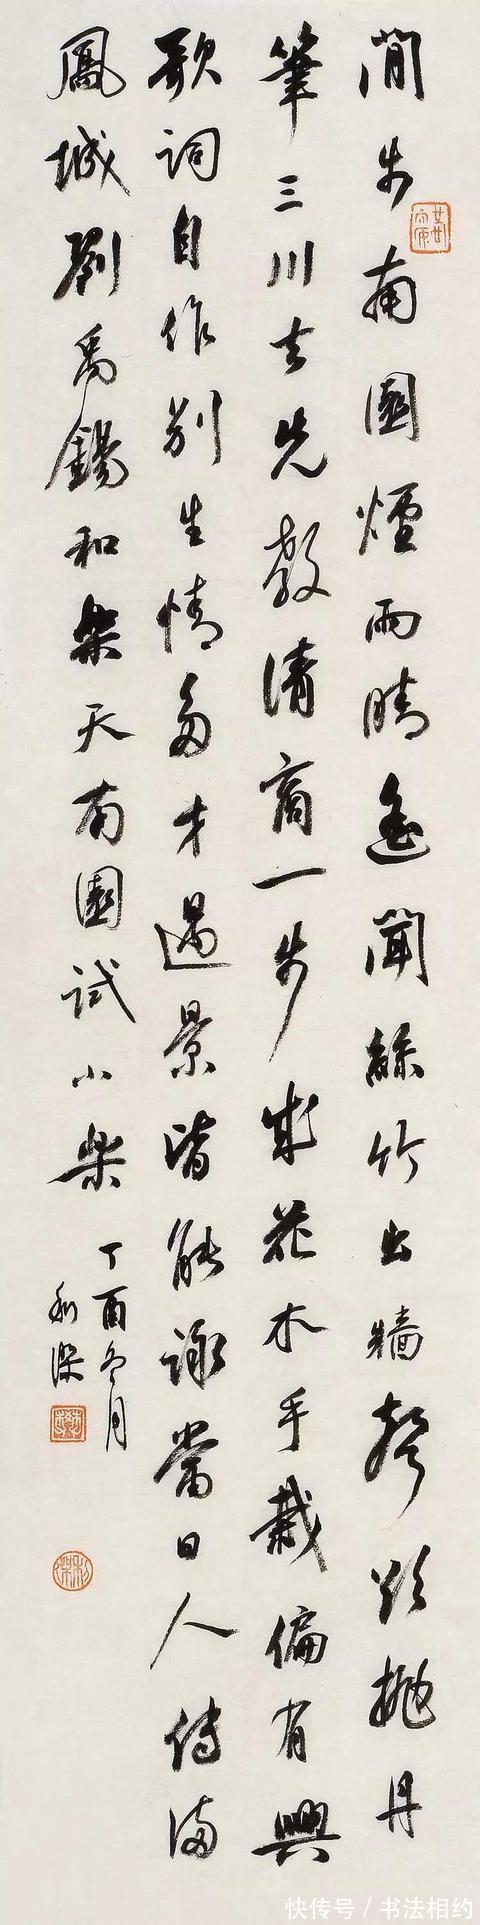 閒步南園煙雨晴遙聞絲竹出牆聲欲抛丹
筆三川去先教清商一步成花木手栽偏有興
歌詞自作別生情多才遇景皆能詠當日人傳滿
鳳城劉禹錫和樂天南園試小樂
丁酉冬月
快传号/书法相约